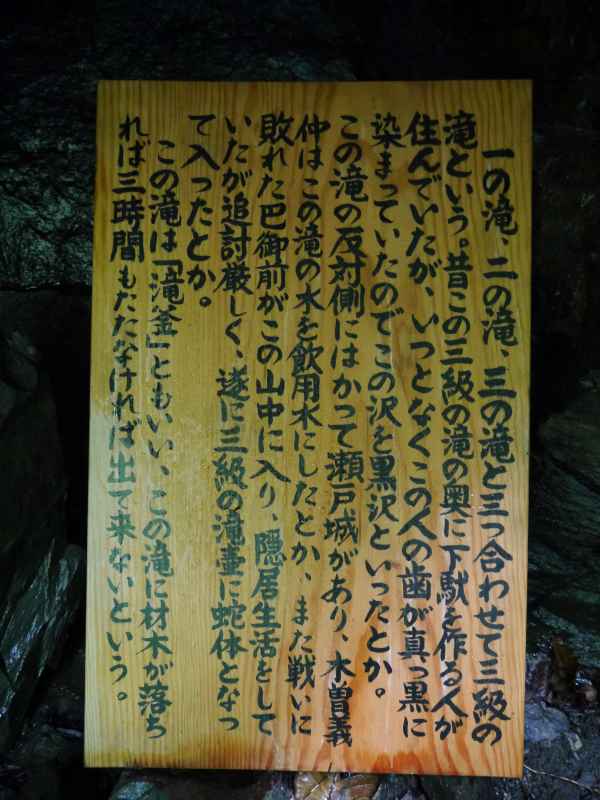 一の滝、二の滝、三の滝と三つ合わせて三級の
滝という。昔この三級の滝の奥に下駄を作る人が
住んでいたが、いつとなくこの人の歯が真っ黒に
染まっていたのでこの沢を黒沢といったとか。
この滝の反対側にはかって瀬戸城があり、木曽義
仲はこの滝の水を飲用水にしたとか、また戦いに
敗れた巴御前がこの山中に入り、隠居生活をして
いたが追討厳しく、遂に三級の滝壷に蛇体となっ
て入ったとか。
この滝は「滝釜」ともいい、この滝に材木が落ち
れば三時間もたたなければ出て来ないという。